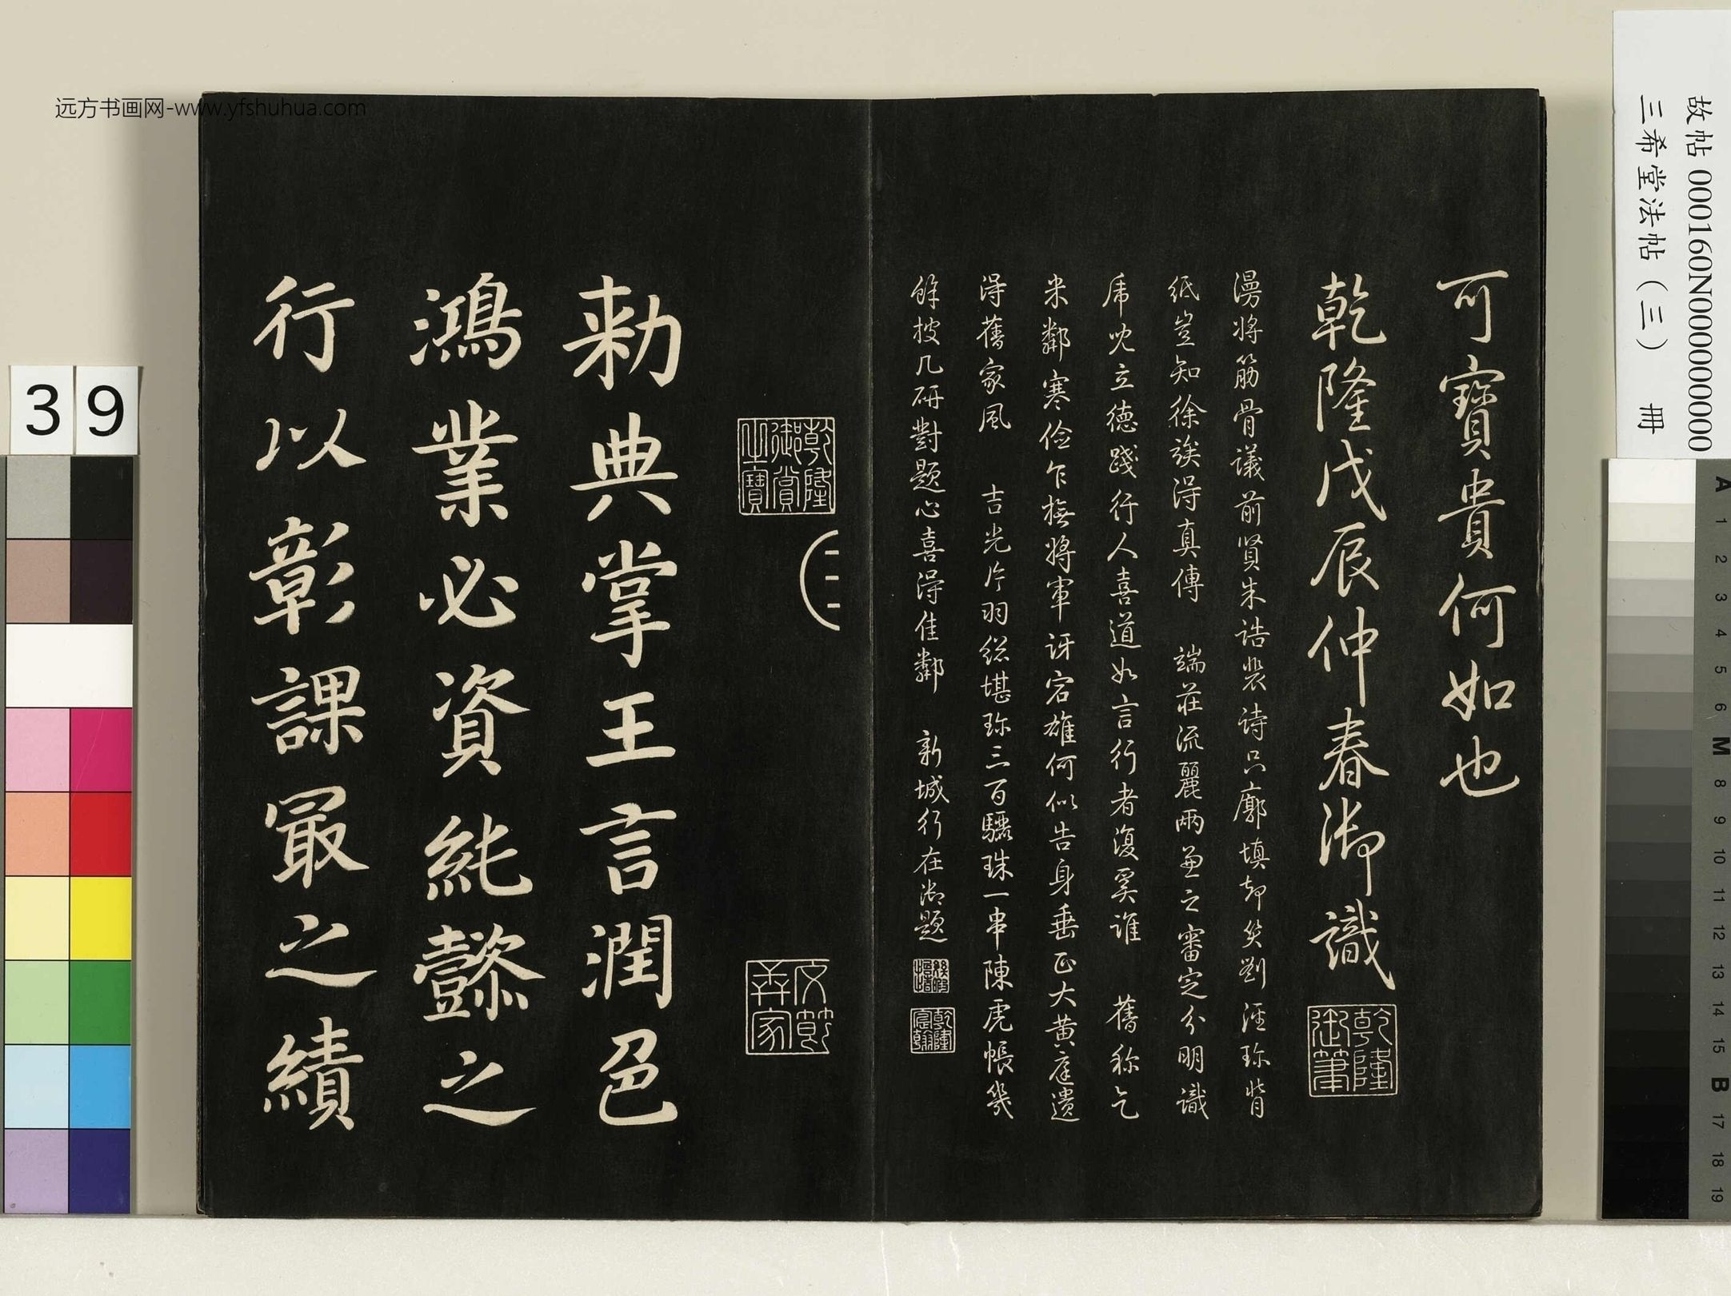 可寶貴何如也
乾隆戊辰仲春御識
乾隆御筆
漫將筋骨議前賢朱誥裴詩只廓填却笑劉涇珎背
紙豈知徐族得真傳　端莊流麗兩兼之審定分明識
帋吮立德踐行人喜道如言行者復奚誰　舊称乞
米鄰寒儉乍撫將軍訝宕雄何似告身垂正大黃庭遺
得舊家風　吉光片羽總堪珎三百驪珠一串陳虎帳幾
餘披几研對題心喜得佳鄰　新城行在御題
乾隆宸翰
乾隆御賞之寶
勑典掌王言潤色
鴻業必資純懿之
行以彰課冣之績
远方书画网-www.yfshuhua.com
故帖 000160N000000000
三希堂法帖（三） 冊
39
A 1 2 3 4 5 6 M 8 9 10 11 12 13 14 15 B 17 18 19